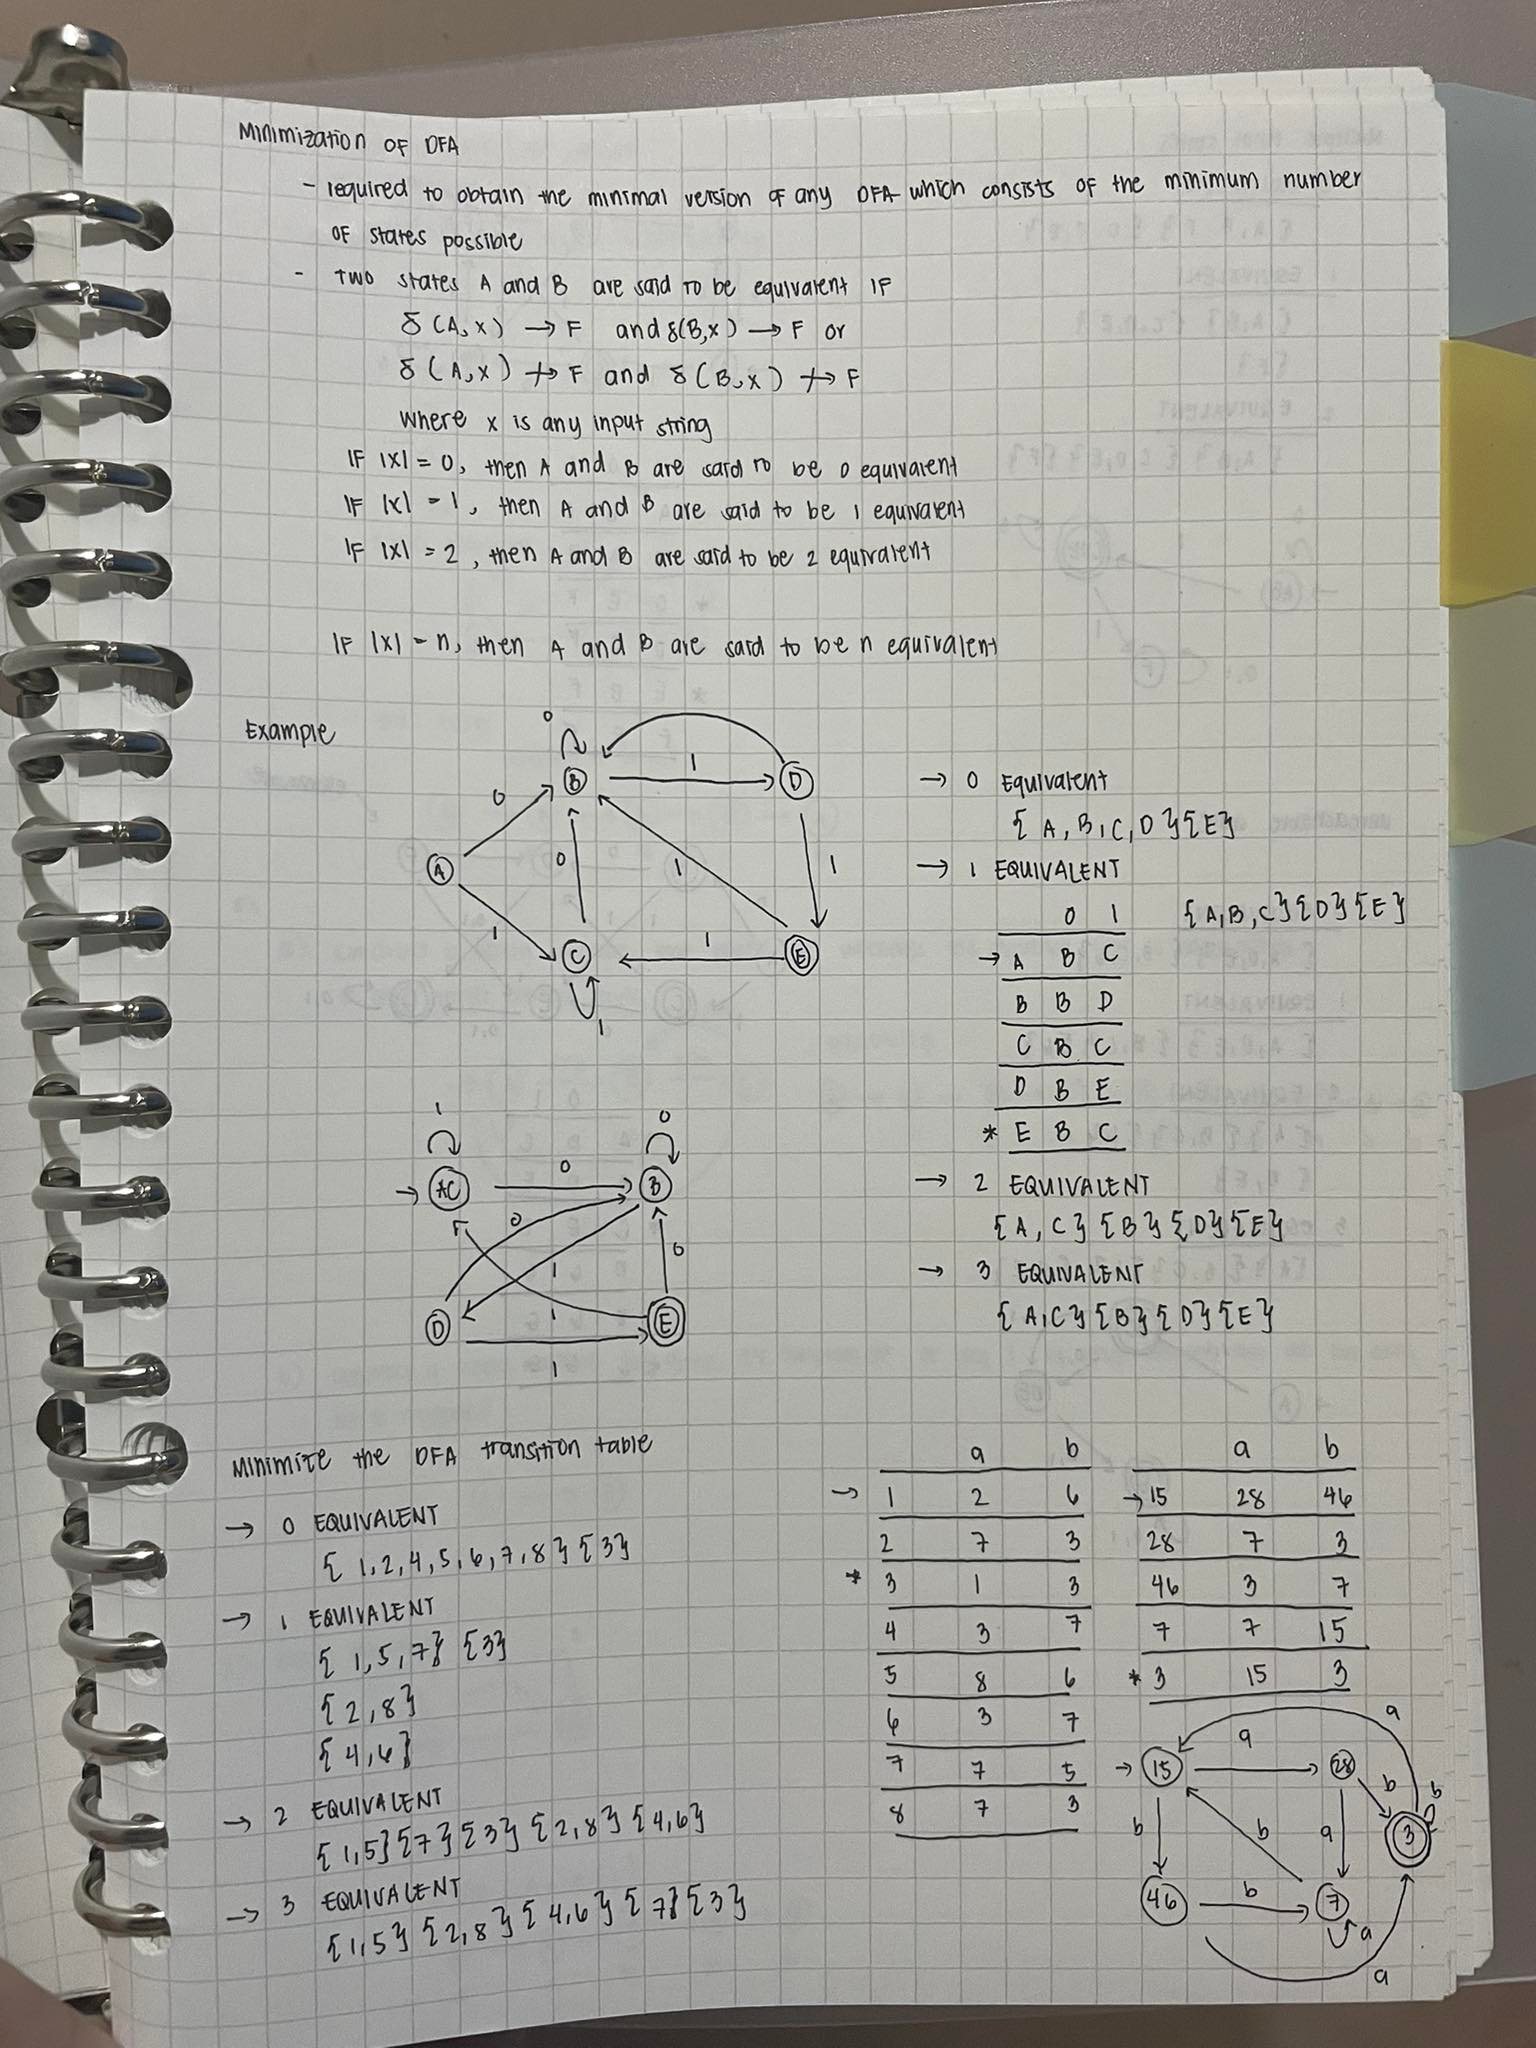 Minimization of DFA
- required to obtain the minimal version of any DFA which consists of the minimum number
of states possible
- Two states A and B are said to be equivalent if
δ (A, x) → F and δ(B,x) → F or
δ (A, x) ↛ F and δ (B, x) ↛ F
where x is any input string
If |x| = 0, then A and B are said to be 0 equivalent
If |x| = 1, then A and B are said to be 1 equivalent
If |x| = 2, then A and B are said to be 2 equivalent
If |x| = n, then A and B are said to be n equivalent
Example
0
B
1
D
0
A
0
1
1
1
C
1
E
1
→ 0 Equivalent
{ A, B, C, D } { E }
→ 1 EQUIVALENT
0 1 { A, B, C } { D } { E }
→ A B C
B B D
C B C
D B E
* E B C
→ 2 EQUIVALENT
{ A, C } { B } { D } { E }
→ 3 EQUIVALENT
{ A, C } { B } { D } { E }
1
0
→ AC
0
B
0
1
0
1
D
E
1
Minimize the DFA transition table
→ 0 EQUIVALENT
{ 1, 2, 4, 5, 6, 7, 8 } { 3 }
→ 1 EQUIVALENT
{ 1, 5, 7 } { 3 }
{ 2, 8 }
{ 4, 6 }
→ 2 EQUIVALENT
{ 1, 5 } { 7 } { 3 } { 2, 8 } { 4, 6 }
→ 3 EQUIVALENT
{ 1, 5 } { 2, 8 } { 4, 6 } { 7 } { 3 }
a b
→ 1 2 6
2 7 3
* 3 1 3
4 3 7
5 8 6
6 3 7
7 7 5
8 7 3
a b
→ 15 28 46
28 7 3
46 3 7
7 7 15
* 3 15 3
a
a
→ 15
28
b
b
3
b
b
a
46
b
7
a
a